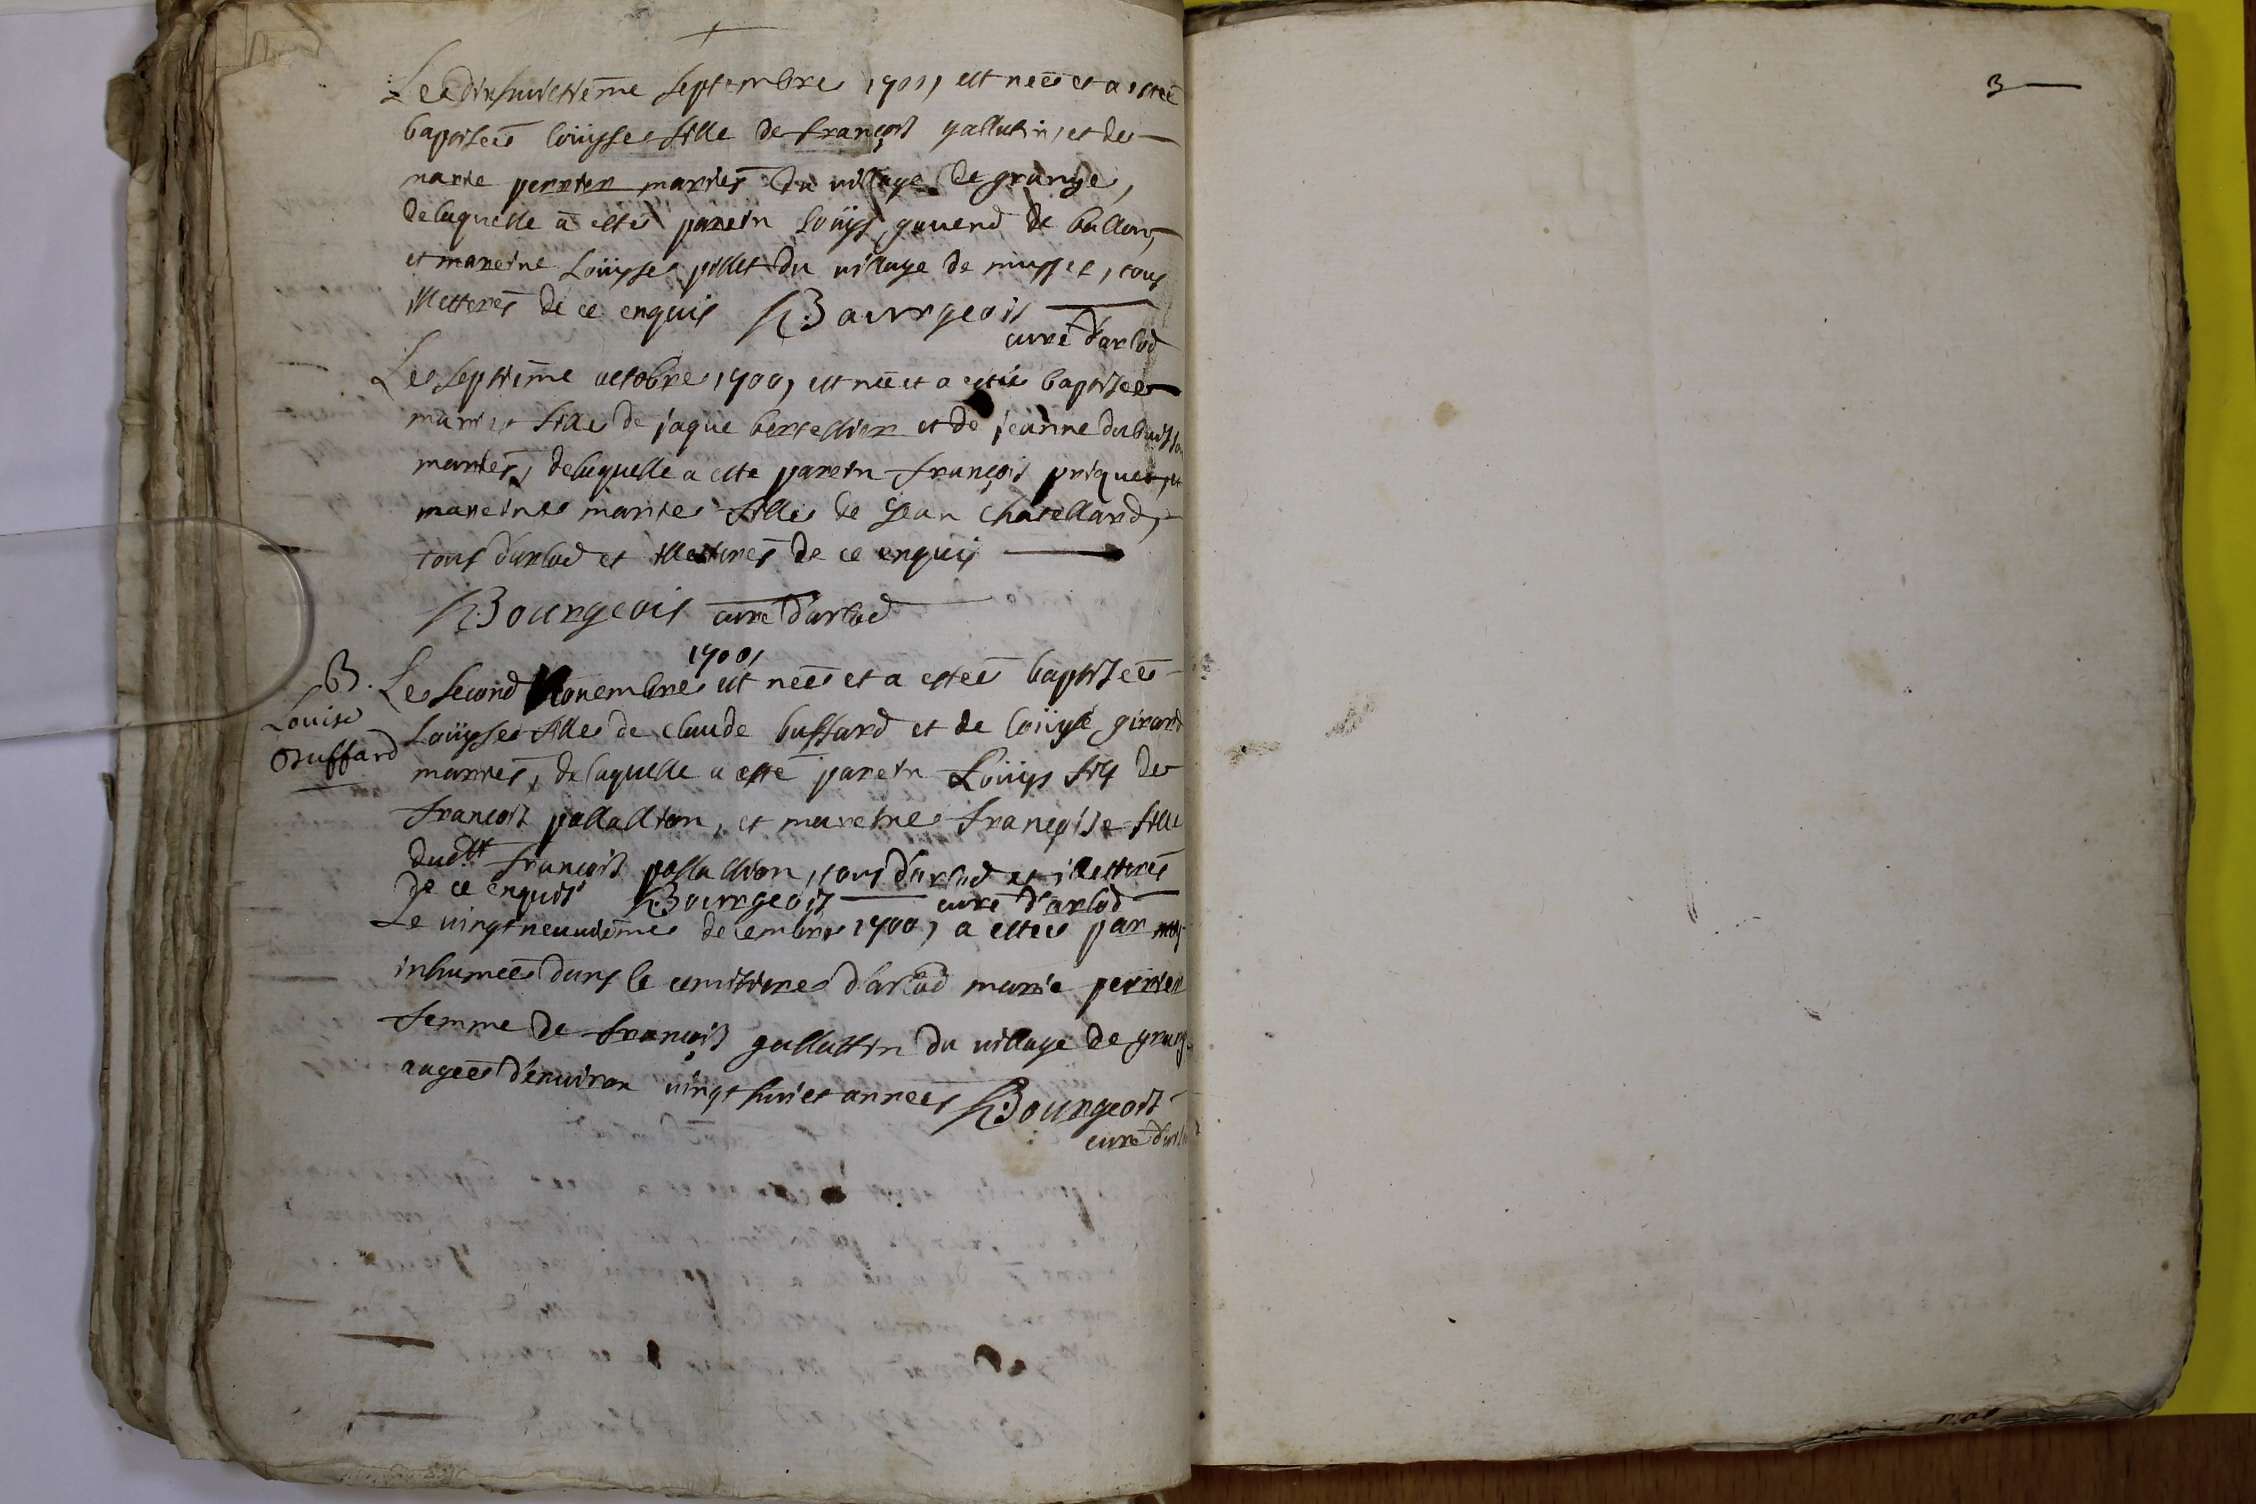 Le dixhuictiéme septembre 1701, est neé et a esteé
baptiseé loüyse fille de françois gallatin, et de
marie perrier mariés du village de grange,
delaquelle a esté parein loüys gavend de ballon,
et mareine Loüyse pillet du village de mussel, tous
illetterés de ce enquis Bourgeois
curé d'arlod
Le septiéme octobre 1700, est neé et a esteé baptiseé
marie fille de jaque bertellier et de jeanne dubuisson
mariés, delaquelle a esté parein françois priquet, et
mareine marie fille de jean chatellard,
tous d'arlod et illetterés de ce enquis
Bourgeois curé d'arlod
1700,
B. Le second novembre est neé et a esteé baptiseé
Louise Buffard
Loüyse fille de claude buffard et de loüyse girard
mariés, delaquelle a esté parein Loüys fils de
françois pallallion, et mareine françoise fille
dudtt françois pallallion, tous d'arlod et illetterés
de ce enquis Bourgeois curé d'arlod
Le vingtneuviéme decembre 1700, a esteé par moy
inhumeé dans le cemitiere d'arlod marie perrier
femme de françois gallattin du village de grange
aageé d'environ vingt huict anneés Bourgeois
curé d'arlod
3